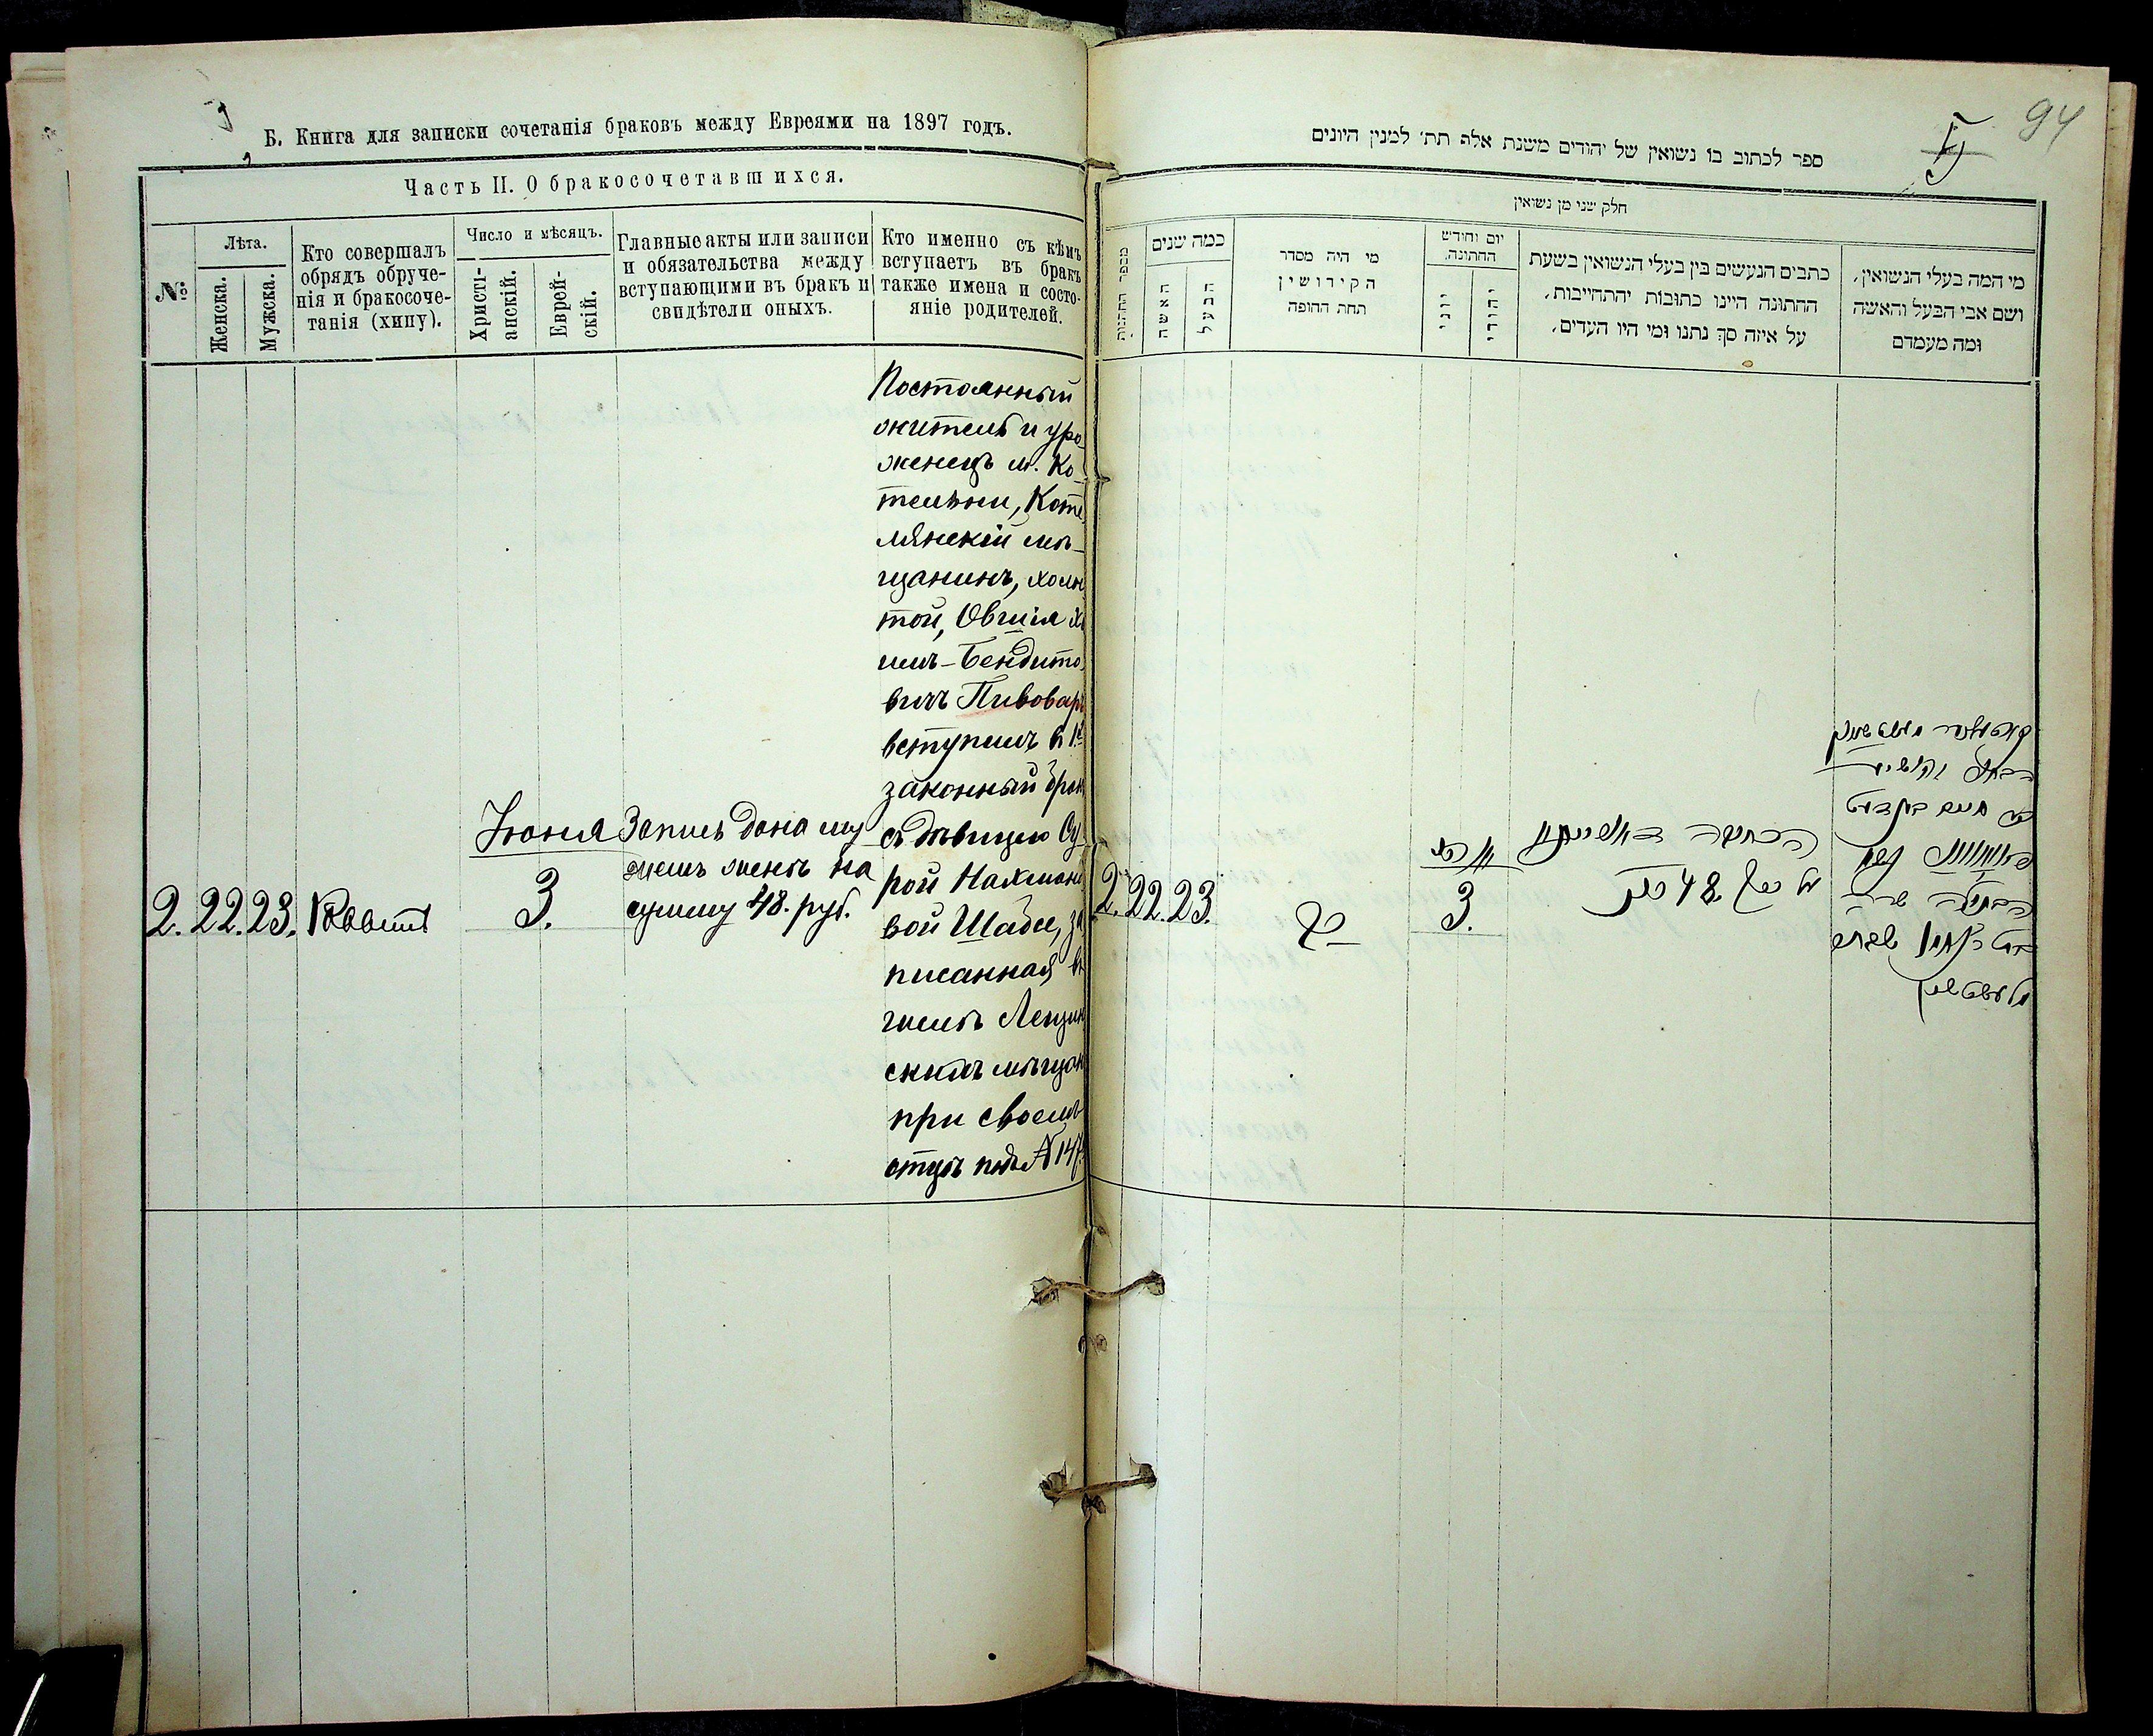 Б. Книга для записки сочетанія браковъ между Евреями на 1897 годъ.
Часть II. О бракосочетавшихся.
№
Лѣта.
Женска.
Мужска.
Кто совершалъ
обрядъ обруче-
нія и бракосоче-
танія (хипу).
Число и мѣсяцъ.
Христі-
анскій.
Еврей-
скій.
Главные акты или записи
и обязательства между
вступающими въ бракъ и
свидѣтели оныхъ.
Кто именно съ кѣмъ
вступаетъ въ бракъ
также имена и состо-
яніе родителей.
2. 22. 23. Раввинъ
Іюня
3.
Запись дана му
жемъ женѣ на
сумму 48. руб.
Постоянный
житель и уро
женецъ м. Ко
тельни, Коте
лянскій мѣ-
щанинъ, холос
той, Овшія Ха
имъ-Бендито
вичъ Пивоваръ
вступилъ въ 1й
законный бракъ
съ дѣвицею Су
рой Нахмано
вой Шабсе, за
писанная въ
числѣ Лещин
скихъ мѣщан
при своемъ
отцѣ подъ № 147.
94
ספר לכתוב בו נשואין של יהודים משנת אלף תת׳ למנין היונים
חלק שני מן נשואין
מספר החתנות
כמה שנים
האשה
הבעל
מי היה מסדר
הקידושין
תחת החופה
יום וחודש
החתונה.
יוני
יהודי
כתבים הנעשים בין בעלי הנשואין בשעת
החתונה היינו כתובות יהתחייבות,
על איזה סך נתנו ומי היו העדים,
מי המה בעלי הנשואין,
ושם אבי הבעל והאשה
ומה מעמדם
2. 22. 23.
רב
3.
48